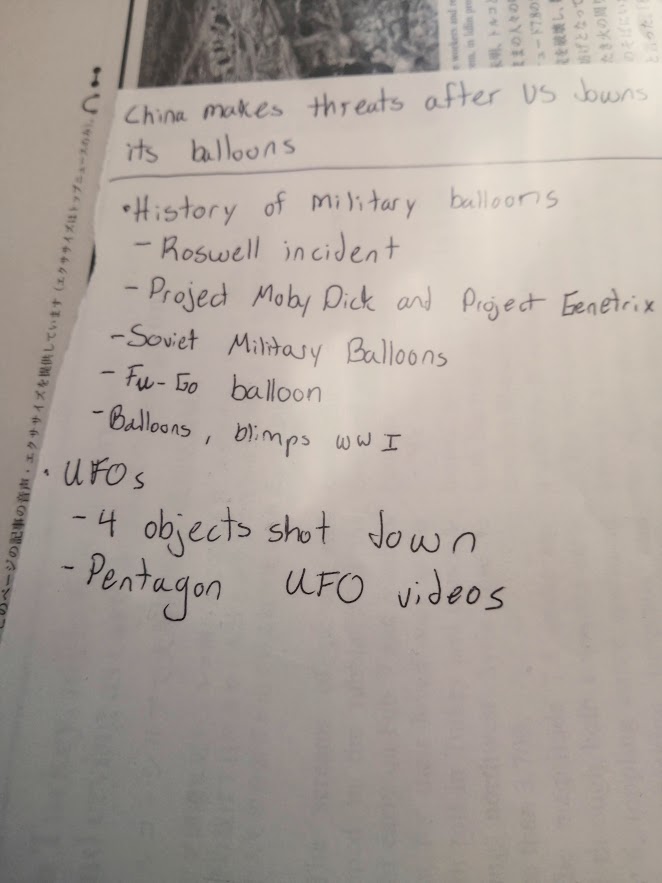 workers and
in Idlib
トルコと
ままの人々の
ュード7.8の
を破壊し、
となって
たき火の周り
のそばにい
China makes threats after US downs
its balloons
•History of military balloons
- Roswell incident
- Project Moby Dick and Project Genetrix
-Soviet Military Balloons
- Fu-Go balloon
-Balloons, blimps WW I
• UFOs
-4 objects shot down
-Pentagon UFO videos
のページの記事の音声・エクササイズを提供しています（エクササイズはトップニュースのみ）。